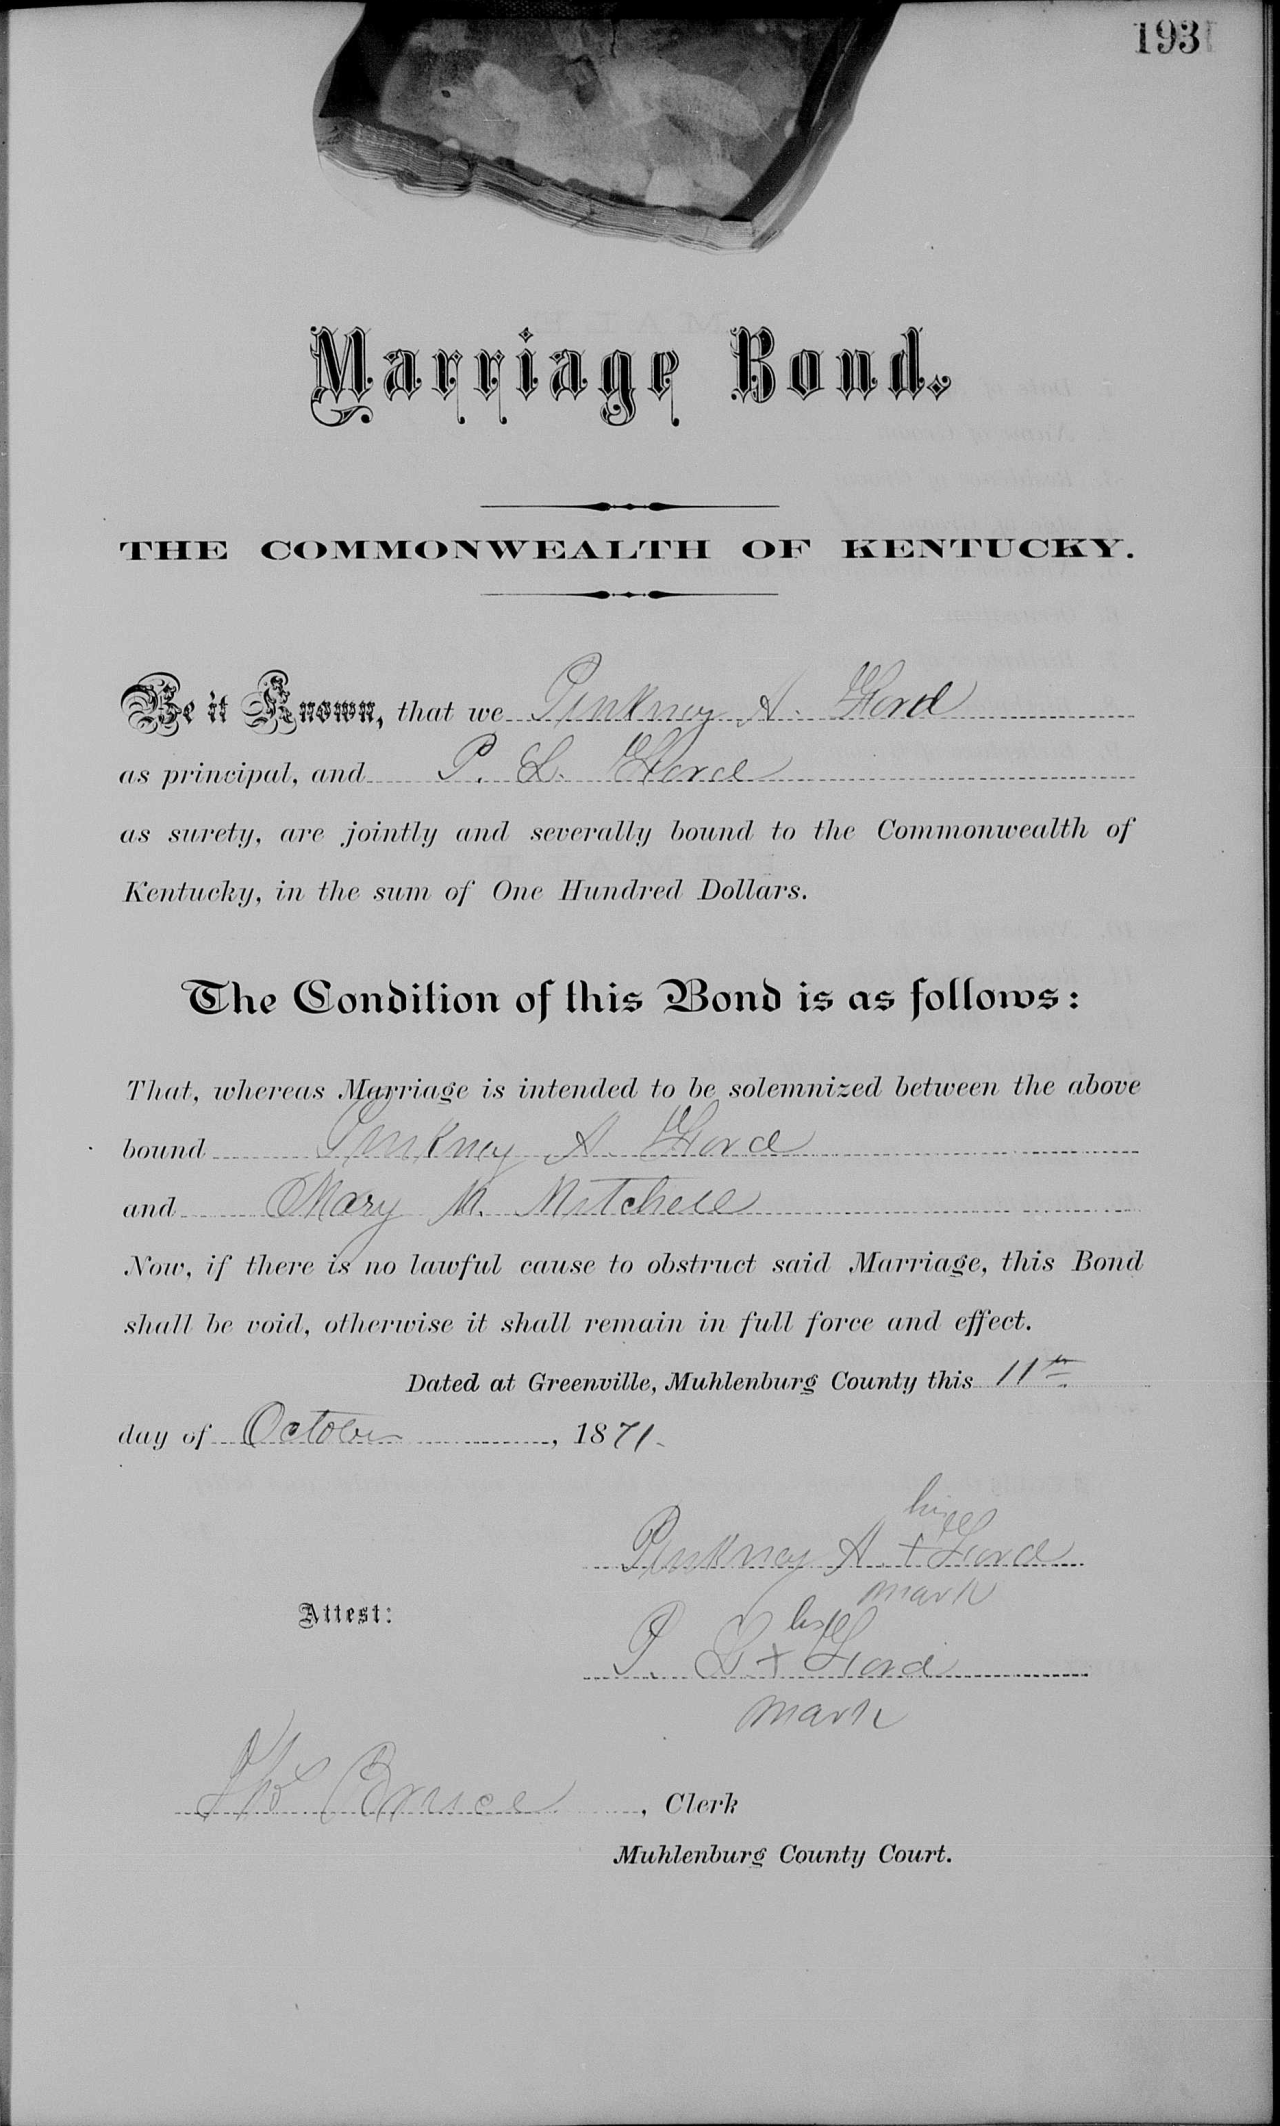 193
Marriage Bond.
THE COMMONWEALTH OF KENTUCKY.
Be it Known, that we Pinkney A. Ford
as principal, and P. L. Ford
as surety, are jointly and severally bound to the Commonwealth of
Kentucky, in the sum of One Hundred Dollars.
The Condition of this Bond is as follows:
That, whereas Marriage is intended to be solemnized between the above
bound Pinkney A. Ford
and Mary M. Mitchell
Now, if there is no lawful cause to obstruct said Marriage, this Bond
shall be void, otherwise it shall remain in full force and effect.
Dated at Greenville, Muhlenburg County this 11th
day of October, 1871.
his
Pinkney A. + Ford
mark
Attest:
his
P. L + Ford
mark
Bruce, Clerk
Muhlenburg County Court.